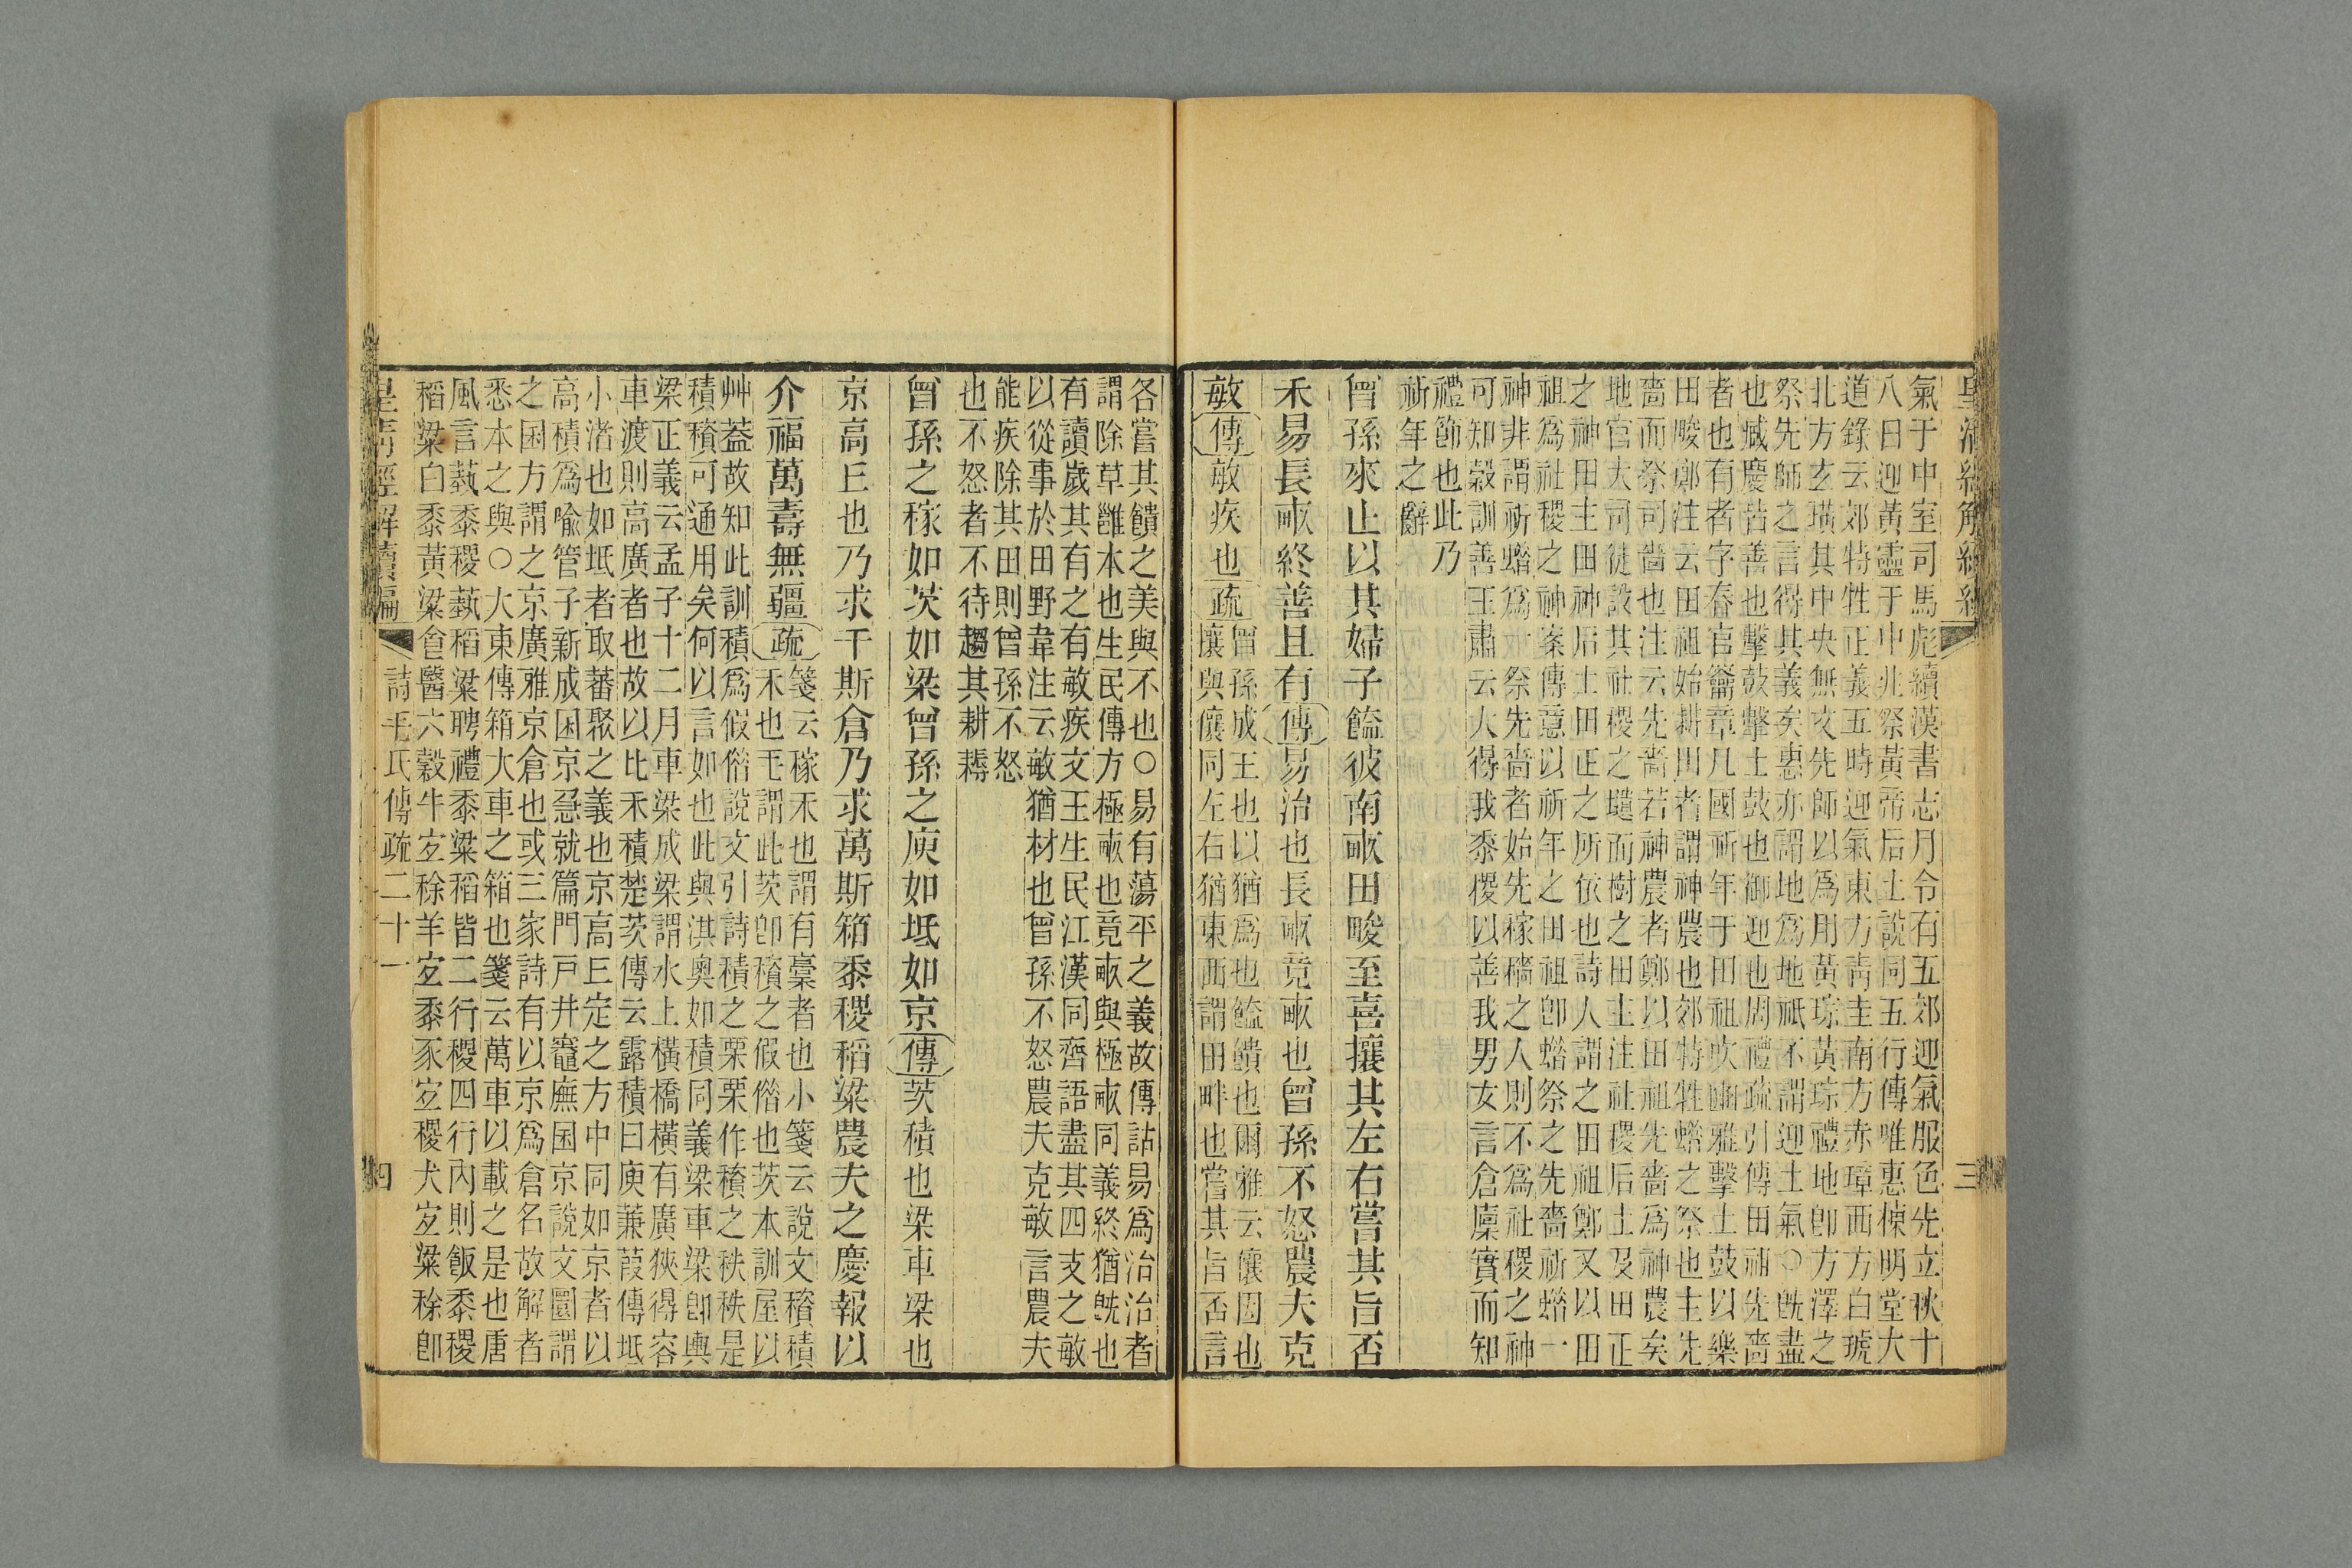 氣于中室司馬彪續漢書志月令有五郊迎氣服色先立秋十
八日迎黃靈于中兆祭黃帝后土說同五行傳唯惠棟明堂大
道錄云郊特牲正義五時迎氣東方靑圭南方赤璋西方白琥
北方玄璜其中央無文先師以爲用黃琮黃琮禮地卽方澤之
祭先師之言得其義矣惠亦謂地爲地祇不謂迎土氣○旣盡
也臧慶皆善也擊鼓擊土鼓也御迎也周禮疏引傳田祖先嗇
者也有者字春官籥章凡國祈年于田祖吹豳雅擊土鼓以樂
田畯鄭注云田祖始耕田者謂神農也郊特牲蜡之祭也主先
嗇而祭司嗇也注云先嗇若神農者鄭以田祖先嗇爲神農矣
地官大司徒設其社稷之壝而樹之田主注社稷后土及田正
之神田主田神后土田正之所依也詩人謂之田祖鄭又以田
祖爲社稷之神案傳意以祈年之田祖卽蜡祭之先嗇祈蜡一
神非謂祈蜡爲一祭先嗇者始先稼穡之人則不爲社稷之神
可知穀訓善王肅云大得我黍稷以善我男女言倉廩實而知
禮節也此乃
祈年之辭
曾孫來止以其婦子饁彼南畝田畯至喜攘其左右嘗其旨否
禾易長畝終善且有傳易治也長畝竟畝也曾孫不怒農夫克
敏傳敏疾也疏曾孫成王也以猶爲也饁饋也爾雅云饟因也
攘與儴同左右猶東西謂田畔也嘗其旨否言
各嘗其饋之美與不也○易有蕩平之義故傳詁易爲治治者
謂除草雝本也生民傳方極畝也竟畝與極畝同義終猶旣也
有讀歲其有之有敏疾文王生民江漢同齊語盡其四支之敏
以從事於田野韋注云敏猶材也曾孫不怒農夫克敏言農夫
能疾除其田則曾孫不怒
也不怒者不待趨其耕耨
曾孫之稼如茨如梁曾孫之庾如坻如京傳茨積也梁車梁也
京高丘也乃求千斯倉乃求萬斯箱黍稷稻粱農夫之慶報以
介福萬壽無疆疏箋云稼禾也謂有稾者也小箋云說文穧積
禾也毛謂此茨卽穧之假借也茨本訓屋以
艸葢故知此訓積爲假借說文引詩積之栗栗作穧之秩秩是
積穧可通用矣何以言如也此與淇奧如積同義梁車梁卽輿
梁正義云孟子十二月車梁成梁謂水上橫橋橫有廣狹得容
車渡則高廣者也故以比禾積楚茨傳云露積曰庾蒹葭傳坻
小渚也如坻者取蕃聚之義也京高丘定之方中同如京者以
高積爲喻管子新成囷京急就篇門戸井竈廡囷京說文圜謂
之囷方謂之京廣雅京倉也或三家詩有以京爲倉名故解者
悉本之與○大東傳箱大車之箱也箋云萬車以載之是也唐
風言蓺黍稷蓺稻粱聘禮黍粱稻皆二行稷四行內則飯黍稷
稻粱白黍黃粱食醫六穀牛宜稌羊宜黍豕宜稷犬宜粱稌卽
皇淸經解續編 詩毛氏傳疏二十一 四